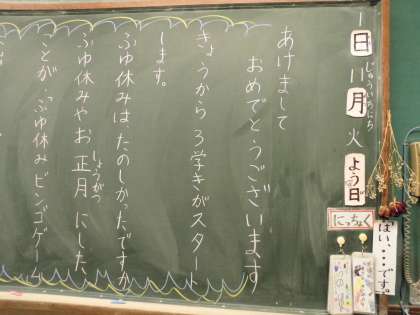 一月十一日火ようび
じゅういちにち
にっちょく
はい、…です。
あけまして
おめでとうございます
きょうから3学きがスタート
します。
ふゆ休みは、たのしかったですか
ふゆ休みやお正月にした、
しょうがつ
ことが、ふゆ休みビンゴゲーム